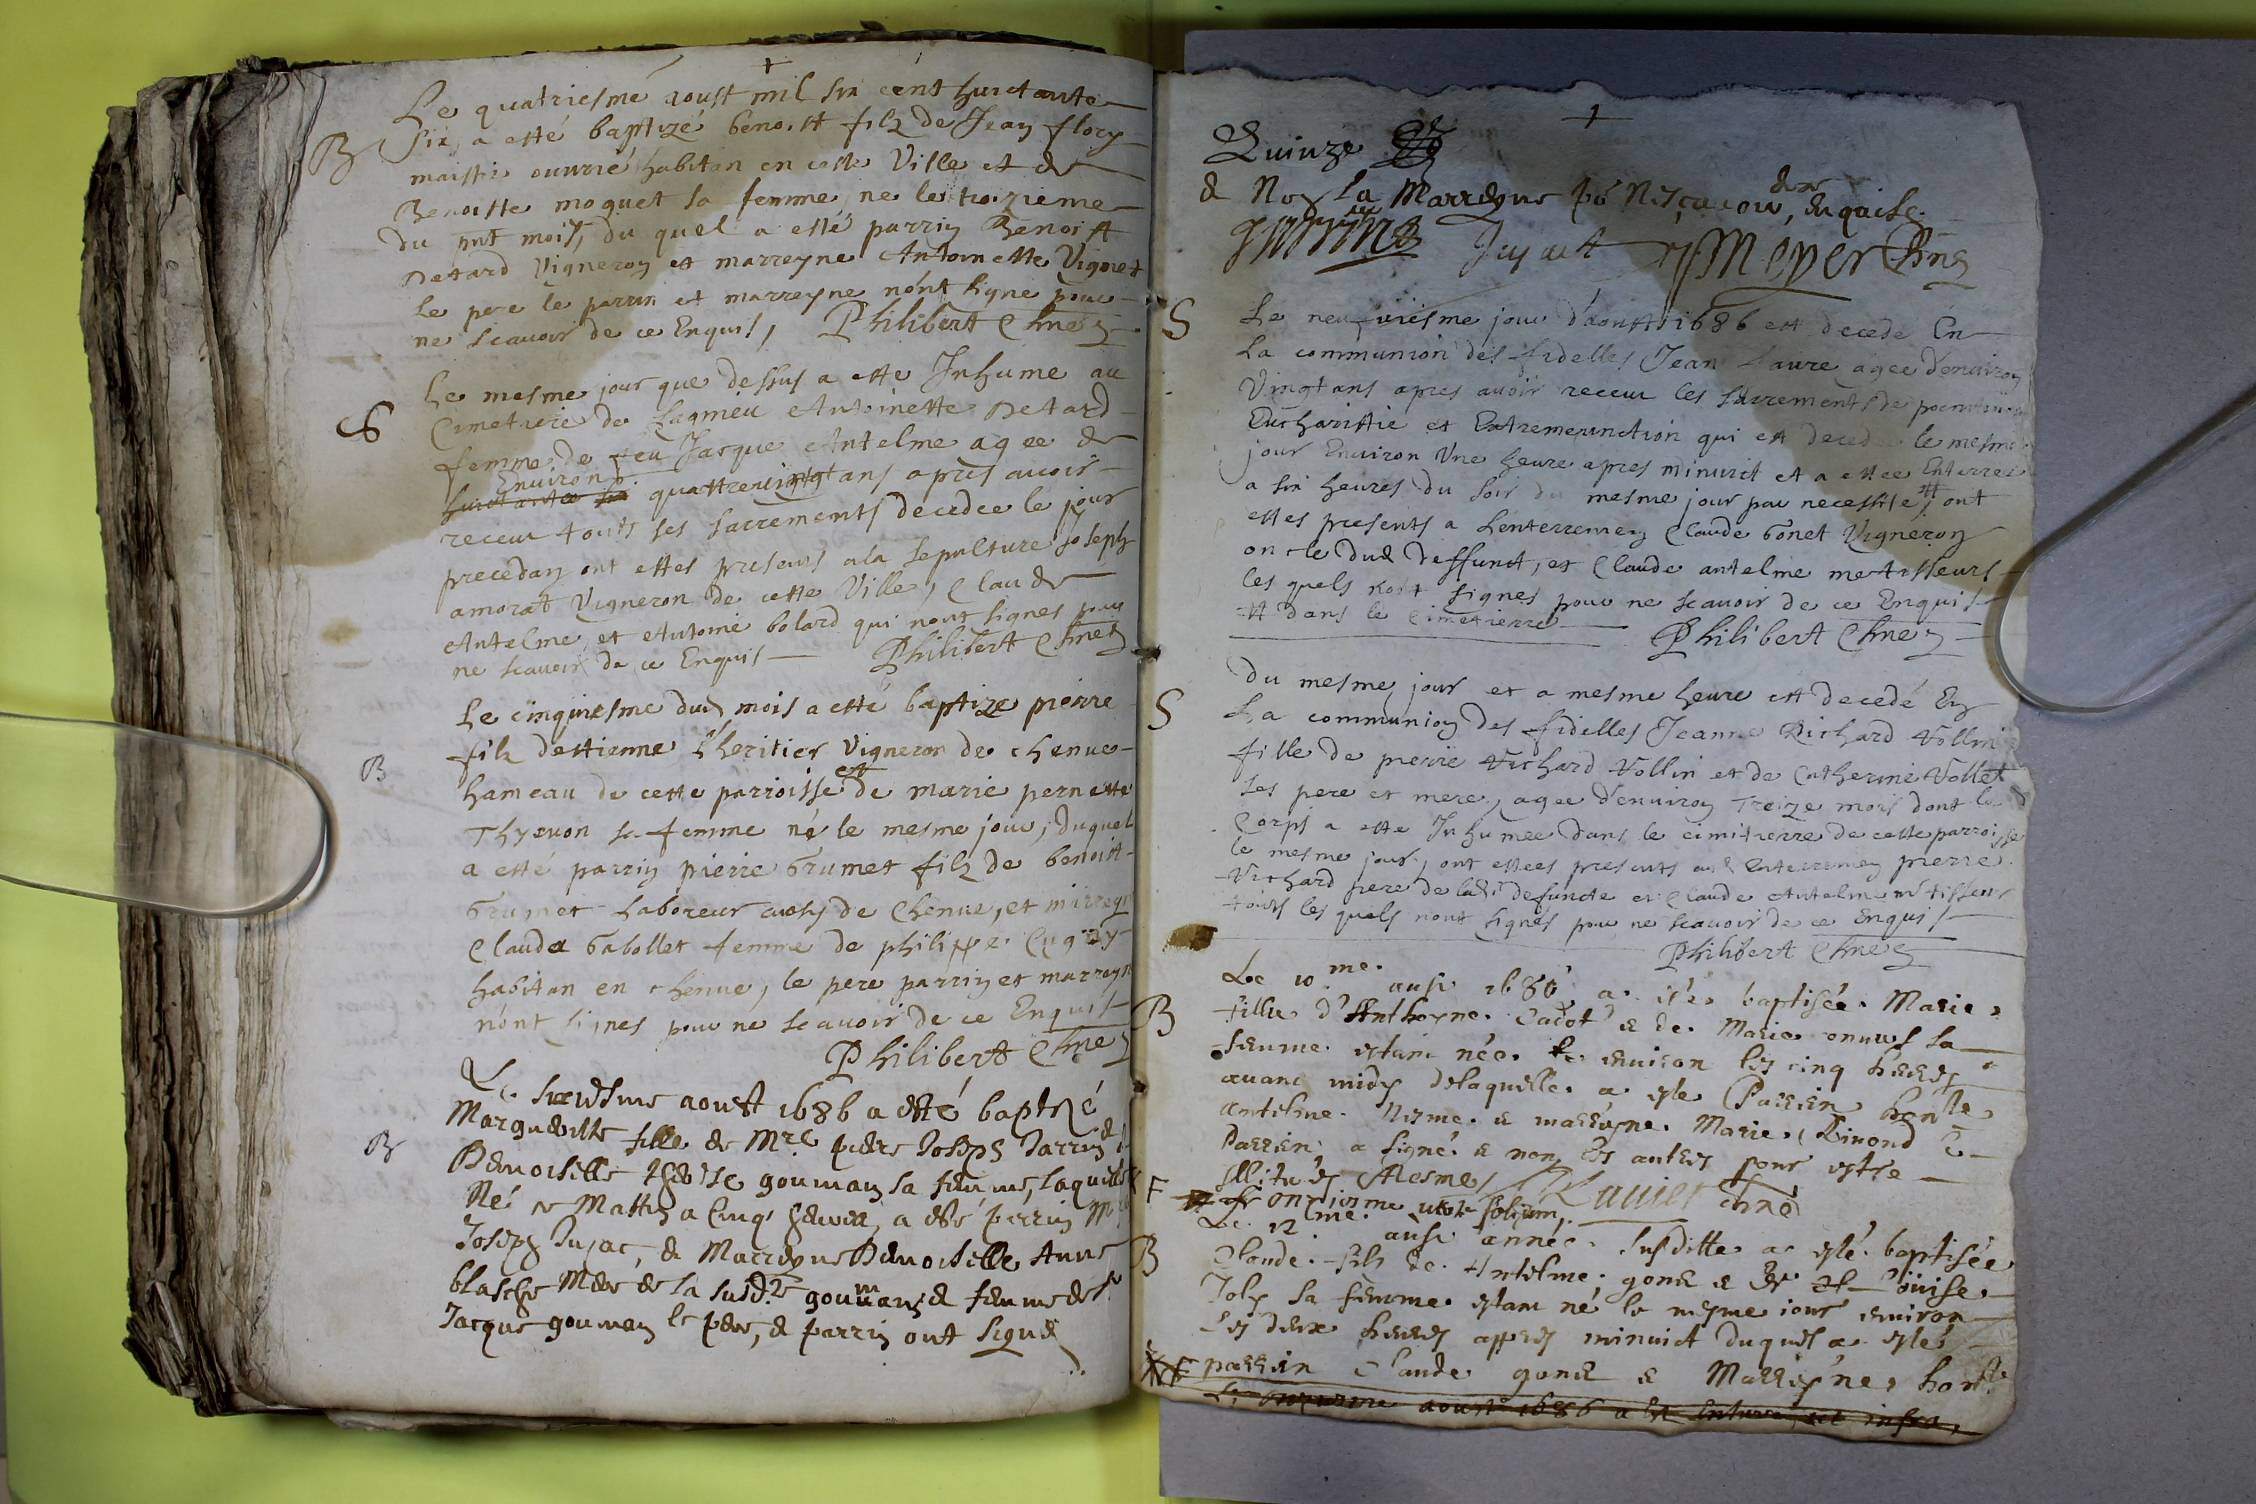 Le quatriesme aoust mil six cent huictante
B six, a esté baptizé benoist filz de Jean flory
maistre ouvrié habitan en ceste Ville et de
Benoiste moquet sa femme, ne le troizieme
du pnt mois, du quel a esté parrin Benoist
Detard Vigneron et marreyne Antoinette Vigoret
Le pere le parrin et marreyne n'ont signe pour
ne scavoir de ce Enquis, Philibert Chne
Le mesme jour que dessus a este Inhume au
S Cimetiere de Lagnieu Antoinette Detard
femme de feu Jacque Antelme agee de
Environ
huictante six quattrevingt ans apres avoir
receu touts ses sacrements decedee le jour
precedan ont estes presents a la sepulture Joseph
amorat Vigneron de cette Ville, Claude
Antelme, et Antoine bolard qui n'ont signes pour
ne scavoir de ce Enquis Philibert Chne
Le cinquiesme dud mois a esté baptize pierre
filz d'estienne L'heritier Vigneron de chenue
B hameau de cette parroisse et de marie pernette
Thyevon sa femme né le mesme jour, duquel
a esté parrin pierre Grumet filz de benoit
Grumet Laboreur aussy de Chenue, et marreyn
Claude Gabollet femme de philippe Cugny
habitan en chenue, le pere parrin et marreyn
n'ont signes pour ne scavoir de ce Enquis
Philibert Chne
Le sixiesme aoust 1686 a esté baptizé
Marguerite fille de Mre piere Joseph Jarrin &
B Demoiselle therese gouman sa femme, laquelle
Né ce Mattin a Cinq heures, a esté parrin Mr
Joseph Jujat, & Marreyne Demoiselle Anne
blasche Mere de la susd.te goumans & femme de Sr
Jacque gouman le pere, & parrin ont signé
Quinze
& Non La Marreyne po. ne scavoir, de ce enquise.
Jujat Moyer Chne
S Le neufviesme jour d'aoust 1686 est decede En
La communion des fidelles Jean Faure agee d'environ
Vingt ans apres avoir receu les sacrements de poenitence
Eucharistie et Extremeunction qui est decede le mesme
jour Environ Une heure apres minuict et a estee Enterree
a six heures du soir du mesme jour par necessité # ont
estes presents a Lenterremen Claude Gonet Vigneron
oncle dud deffunct, et Claude antelme me tisseurs
les quels n'ont signes pour ne scavoir de ce Enquis
# dans le Cimetierre Philibert Chne
Du mesme jour et a mesme heure est decedé En
S La communion des fidelles Jeanne Richard Vollin
fille de pierre Richard Vollin et de Catherine Vollet
ses pere et mere, agee d'environ Treize mois dont le
Corps a este Inhumee dans le cimitierre de cette parroisse
le mesme jour, ont estees presents aud Enterremen pierre
Richard pere de lad.te defuncte et Claude Antelme me tisseur
touts les quels n'ont signés pour ne scavoir de ce Enquis
Philibert Chne
Le 10me. aust 1686 a esté baptisée Marie
B fillie d'Anthoyne Cadot & de Marie sa
femme estant née environ les cinq heures
avant midy delaquelle a este Parrin hon.te
Antelme & marreyne Marie Rimond
Parrein a signé & non les autres pour estre
illitrés
F onziesme folium, Chne
Le 12me. aust année susditte a esté baptisée
B Claude fils de Antelme gonet & de Louise
Joly sa femme estant né le mesme jour environ
les deux heures appres minuict duquel a esté
parrein Claude gonet & Marreyne hon.te
Le onziesme aoust 1686 a est ut infra,